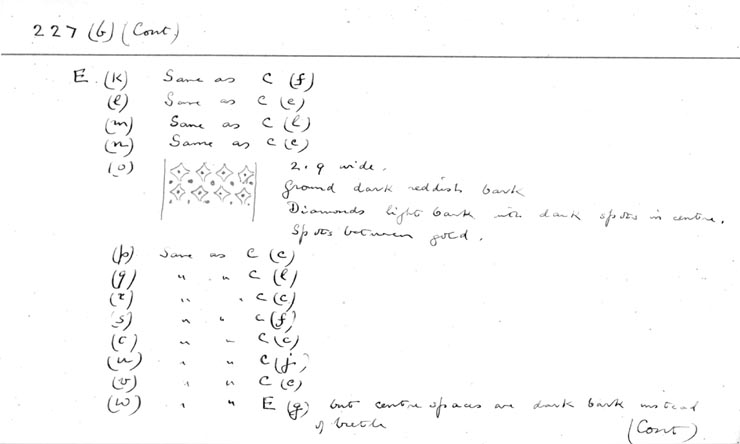 227 (b) (Cont)
E. (k) Same as C (f)
(l) Same as C (c)
(m) Same as C (l)
(n) Same as C (c)
(o) 2.9 wide.
Ground dark reddish bark
Diamonds light bark with dark spots in centre.
Spots between gold.
(p) Same as C (c)
(q) " " C (l)
(r) " " C (c)
(s) " " C (f)
(t) " " C (c)
(u) " " C (j)
(v) " " C (c)
(w) " " E (g) but centre spaces are dark bark instead
of
(Cont)